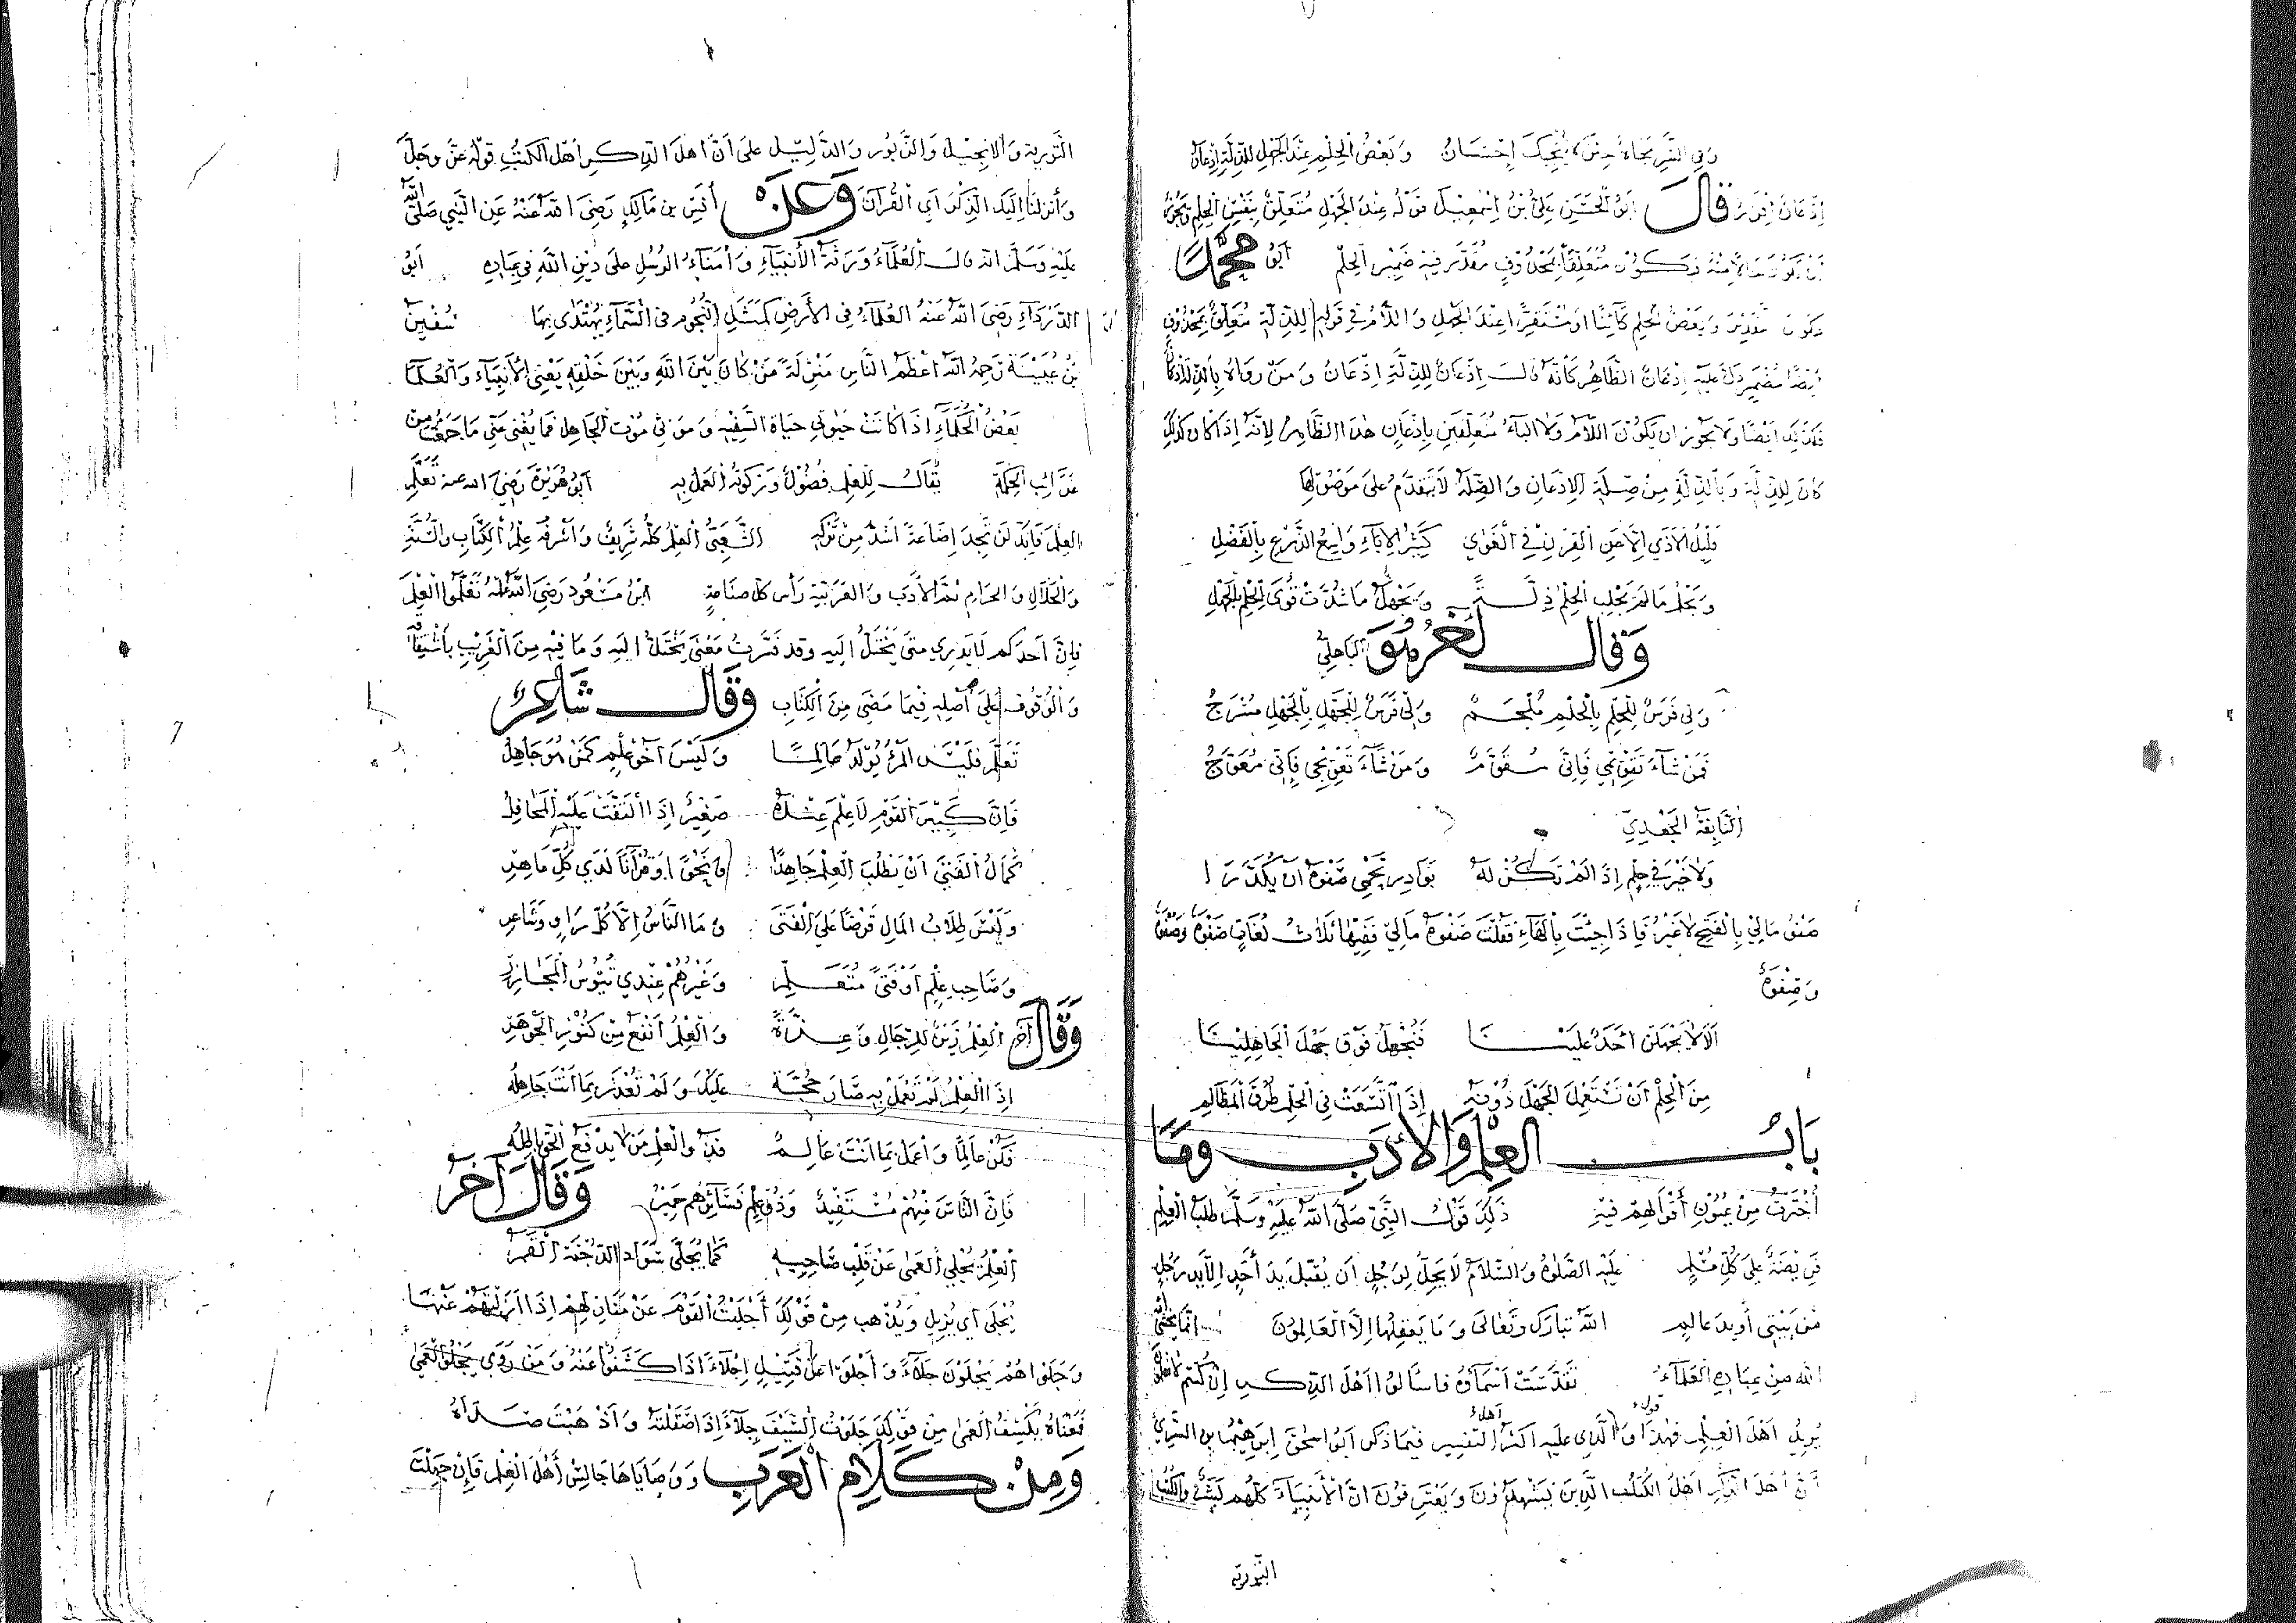 وَفِي الشَّرِّ نَجَاةٌ حِينَ لَا يُنْجِيكَ إِحْسَانُ وَبَعْضُ الْحِلْمِ عِنْدَ الْجَهْلِ لِلذِّلَّةِ إِذْعَانُ
إِذْعَانُ إِقْرَارٌ قَالَ أَبُو الْحَسَنِ عَلِيُّ بْنُ إِسْمَعِيلَ قَوْلُهُ عِنْدَ الْجَهْلِ مُتَعَلِّقٌ بِنَفْسِ الْحِلْمِ وَيَجُوزُ
أَنْ يَكُونَ حَالًا مِنْهُ فَيَكُونُ مُتَعَلِّقًا بِمَحْذُوفٍ مُقَدَّرٍ فِيهِ ضَمِيرُ الْحِلْمِ أَبُو مُحَمَّد
يَكُونُ تَقْدِيرُهُ وَبَعْضُ الْحِلْمِ كَائِنًا أَوْ مُسْتَقِرًّا عِنْدَ الْجَهْلِ وَاللَّامُ فِي قَوْلِهِ لِلذِّلَّةِ مُتَعَلِّقٌ بِمَحْذُوفٍ
أَيْضًا مُضْمَرٍ دَلَّ عَلَيْهِ إِذْعَانُ الظَّاهِرُ كَأَنَّهُ قَالَ إِذْعَانٌ لِلذِّلَّةِ إِذْعَانُ وَمَنْ رَوَاهُ بِالذِّلَّةِ إِذْعَانُ
فَكَذَلِكَ أَيْضًا وَلَا يَجُوزُ أَنْ يَكُونَ اللَّامُ وَلَا الْبَاءُ مُتَعَلِّقَيْنِ بِإِذْعَانِ هَذَا الظَّاهِرِ لِأَنَّهُ إِذَا كَانَ كَذَلِكَ
كَانَ لِلذِّلَّةِ وَبِالذِّلَّةِ مِنْ صِلَةِ الْإِذْعَانِ وَالصِّلَةُ لَا تَتَقَدَّمُ عَلَى مَوْصُولِهَا
قَلِيلُ الْأَذَى إِلَّا عَنِ الْقِرْنِ فِي الْوَغَى كَثِيرُ الْإِبَاءِ وَاسِعُ الذَّرْعِ بِالْفَضْلِ
وَيَحْلُمُ مَا لَمْ يَجْلِبِ الْحِلْمُ ذِلَّةً وَيَجْهَلُ مَا شُدَّتْ قُوَى الْحِلْمِ بِالْجَهْلِ
وَقَالَ الْبَاهِلِيُّ
وَلِي فَرَسٌ لِلْحِلْمِ بِالْحِلْمِ مُلْجَمٌ وَلِي فَرَسٌ لِلْجَهْلِ بِالْجَهْلِ مُسْرَجُ
فَمَنْ شَاءَ تَقْوِيمِي فَإِنِّي مُقَوَّمٌ وَمَنْ شَاءَ تَعْوِيجِي فَإِنِّي مُعَوَّجُ
النَّابِغَةُ الْجَعْدِيّ
وَلَا خَيْرَ فِي حِلْمٍ إِذَا لَمْ تَكُنْ لَهُ بَوَادِرُ تَحْمِي صَفْوَهُ أَنْ يُكَدَّرَا
صَفْوُ مَالِي بِالْفَتْحِ لَا غَيْرُ فَإِذَا جِئْتَ بِالْهَاءِ فَقُلْتَ صَفْوَةُ مَالِي فَفِيهَا ثَلَاثُ لُغَاتٍ صَفْوَةٌ وَصُفْوَةٌ
وَصِفْوَةٌ
أَلَا لَا يَجْهَلَنْ أَحَدٌ عَلَيْنَا فَنَجْهَلَ فَوْقَ جَهْلِ الْجَاهِلِينَا
مِنَ الْحِلْمِ أَنْ تَسْتَعْمِلَ الْجَهْلَ دُونَهُ إِذَا اتَّسَعَتْ فِي الْحِلْمِ طُرْقُ الْمَظَالِمِ
بَابُ الْعِلْمِ وَالْأَدَبِ وَمَا
اخْتَرْتُ مِنْ عُيُونِ أَقْوَالِهِمْ فِيهِ ذَلِكَ قَوْلُ النَّبِيِّ صَلَّى اللَّهُ عَلَيْهِ وَسَلَّمَ طَلَبُ الْعِلْمِ
فَرِيضَةٌ عَلَى كُلِّ مُسْلِمٍ عَلَيْهِ الصَّلَوةُ وَالسَّلَامُ لَا يَحِلُّ لِرَجُلٍ أَنْ يُقَبِّلَ يَدَ أَحَدٍ إِلَّا يَدَ رَجُلٍ
مِنْ بَيْتِي أَوْ يَدَ عَالِمٍ اللَّهُ تَبَارَكَ وَتَعَالَى وَمَا يَعْقِلُهَا إِلَّا الْعَالِمُونَ إِنَّمَا يَخْشَى
اللَّهَ مِنْ عِبَادِهِ الْعُلَمَاءُ تَقَدَّسَتْ أَسْمَاؤُهُ فَاسْأَلُوا أَهْلَ الذِّكْرِ إِنْ كُنْتُمْ لَا تَعْلَمُونَ
يُرِيدُ أَهْلَ الْعِلْمِ فَهَذَا قَوْلٌ وَالَّذِي عَلَيْهِ أَكْثَرُ أَهْلِ التَّفْسِيرِ فِيمَا ذَكَرَ أَبُو إِسْحَقَ إِبْرَهِيمُ بْنُ السَّرِيِّ
أَنَّ أَهْلَ الذِّكْرِ أَهْلُ الْكُتُبِ الَّذِينَ يَشْهَدُونَ وَيَعْتَرِفُونَ أَنَّ الْأَنْبِيَاءَ كُلُّهُمْ بَشَرٌ وَالْكُتُبُ
التَّوْرِيةُ
التَّوْرِيةُ وَالْإِنْجِيلُ وَالزَّبُورُ وَالدَّلِيلُ عَلَى أَنَّ أَهْلَ الذِّكْرِ أَهْلُ الْكُتُبِ قَوْلُهُ عَزَّ وَجَلَّ
وَأَنْزَلْنَا إِلَيْكَ الذِّكْرَ أَيِ الْقُرْآنَ وَعَنْ أَنَسِ بْنِ مَالِكٍ رَضِيَ اللَّهُ عَنْهُ عَنِ النَّبِيِّ صَلَّى اللَّهُ
عَلَيْهِ وَسَلَّمَ أَنَّهُ قَالَ الْعُلَمَاءُ وَرَثَةُ الْأَنْبِيَاءِ وَأُمَنَاءُ الرُّسُلِ عَلَى دِينِ اللَّهِ فِي عِبَادِهِ أَبُو
الدَّرْدَاءِ رَضِيَ اللَّهُ عَنْهُ الْعُلَمَاءُ فِي الْأَرْضِ كَمَثَلِ النُّجُومِ فِي السَّمَاءِ يُهْتَدَى بِهَا سُفْينُ
بْنُ عُيَيْنَةَ رَحِمَهُ اللَّهُ أَعْظَمُ النَّاسِ مَنْزِلَةً مَنْ كَانَ بَيْنَ اللَّهِ وَبَيْنَ خَلْقِهِ يَعْنِي الْأَنْبِيَاءَ وَالْعُلَمَاءَ
بَعْضُ الْحُكَمَاءِ إِذَا كَانَتْ حَيَوتِي حَيَاةَ السَّفِيهِ وَمَوْتِي مَوْتَ الْجَاهِلِ فَمَا يُغْنِي عَنِّي مَا جَمَعْتُ مِنْ
غَرَائِبِ الْحِكْمَةِ يُقَالُ لِلْعِلْمِ فُضُولٌ وَزَكَوتُهُ الْعَمَلُ بِهِ أَبُو هُرَيْرَةَ رَضِيَ اللَّهُ عَنْهُ تَعَلَّمِ
الْعِلْمَ فَإِنَّكَ لَنْ تَجِدَ إِضَاعَةً أَشَدَّ مِنْ تَرْكِهِ الشَّعْبِيُّ الْعِلْمُ كُلُّهُ شَرِيفٌ وَأَشْرَفُهُ عِلْمُ الْكِتَابِ وَالسُّنَّةِ
وَالْحَلَالِ وَالْحَرَامِ ثُمَّ الْأَدَبِ وَالْعَرَبِيَّةِ رَأْسِ كُلِّ صِنَاعَةٍ ابْنُ مَسْعُودٍ رَضِيَ اللَّهُ عَنْهُ تَعَلَّمُوا الْعِلْمَ
فَإِنَّ أَحَدَكُمْ لَا يَدْرِي مَتَى يُخْتَلُّ إِلَيْهِ وَقَدْ فَسَّرْتُ مَعْنَى يُخْتَلُّ إِلَيْهِ وَمَا فِيهِ مِنَ الْغَرِيبِ بِاشْتِقَاقِهِ
وَالْوُقُوفِ عَلَى أَصْلِهِ فِيمَا مَضَى مِنَ الْكِتَابِ وَقَالَ شَاعِرٌ
تَعَلَّمْ فَلَيْسَ الْمَرْءُ يُولَدُ عَالِمًا وَلَيْسَ أَخُو عِلْمٍ كَمَنْ هُوَ جَاهِلُ
فَإِنَّ كَبِيرَ الْقَوْمِ لَا عِلْمَ عِنْدَهُ صَغِيرٌ إِذَا الْتَفَّتْ عَلَيْهِ الْمَحَافِلُ
كَمَالُ الْفَتَى أَنْ يَطْلُبَ الْعِلْمَ جَاهِدًا وَنَحْوًا وَقُرْآنًا لَدَى كُلِّ مَاهِرِ
وَلَيْسَ طِلَابُ الْمَالِ فَرْضًا عَلَى الْفَتَى وَمَا النَّاسُ إِلَّا كُلُّ رَاوٍ وَشَاعِرِ
وَصَاحِبِ عِلْمٍ أَوْ فَتًى مُتَعَلِّمٍ وَغَيْرُهُمْ عِنْدِي تُيُوسُ الْمَجَازِرِ
وَقَالَ آخَرُ الْعِلْمُ زَيْنٌ لِلرِّجَالِ وَعِزَّةٌ وَالْعِلْمُ أَنْفَعُ مِنْ كُنُوزِ الْجَوْهَرِ
إِذَا الْعِلْمُ لَمْ تَعْمَلْ بِهِ صَارَ حُجَّةً عَلَيْكَ وَلَمْ تُعْذَرْ بِمَا أَنْتَ جَاهِلُهْ
فَكُنْ عَالِمًا وَاعْمَلْ بِمَا أَنْتَ عَالِمٌ وَالْعِلْمِ مَنْ لَا يَدْفَعُ الْحَقَّ بَاطِلُهْ
فَإِنَّ النَّاسَ مِنْهُمْ مُسْتَفِيدٌ وَذُو عِلْمٍ فَسَائِرُهُمْ حَمِيرُ وَقَالَ آخَرُ
الْعِلْمُ يُجْلِي الْعَمَى عَنْ قَلْبِ صَاحِبِهِ كَمَا يُجَلِّي سَوَادَ الدُّجْنَةِ الْقَمَرُ
يُجْلِي أَيْ يُزِيلُ وَيُذْهِبُ مِنْ قَوْلِكَ أَجْلَيْتُ الْقَوْمَ عَنْ مَنَازِلِهِمْ إِذَا أَزَلْتَهُمْ عَنْهَا
وَجَلَوْا هُمْ يَجْلُونَ جَلَاءً وَأَجْلَوْا عَنْ قَتِيلٍ إِجْلَاءً إِذَا كَشَفُوا عَنْهُ وَمَنْ رَوَى يَجْلُو الْعَمَى
فَمَعْنَاهُ يَكْشِفُ الْعَمَى مِنْ قَوْلِكَ جَلَوْتُ السَّيْفَ جِلَاءً إِذَا صَقَلْتَهُ وَأَذْهَبْتَ صَدَاهُ
وَمِنْ كَلَامِ الْعَرَبِ وَوَصَايَاهَا جَالِسْ أَهْلَ الْعِلْمِ فَإِنْ جَهِلْتَ